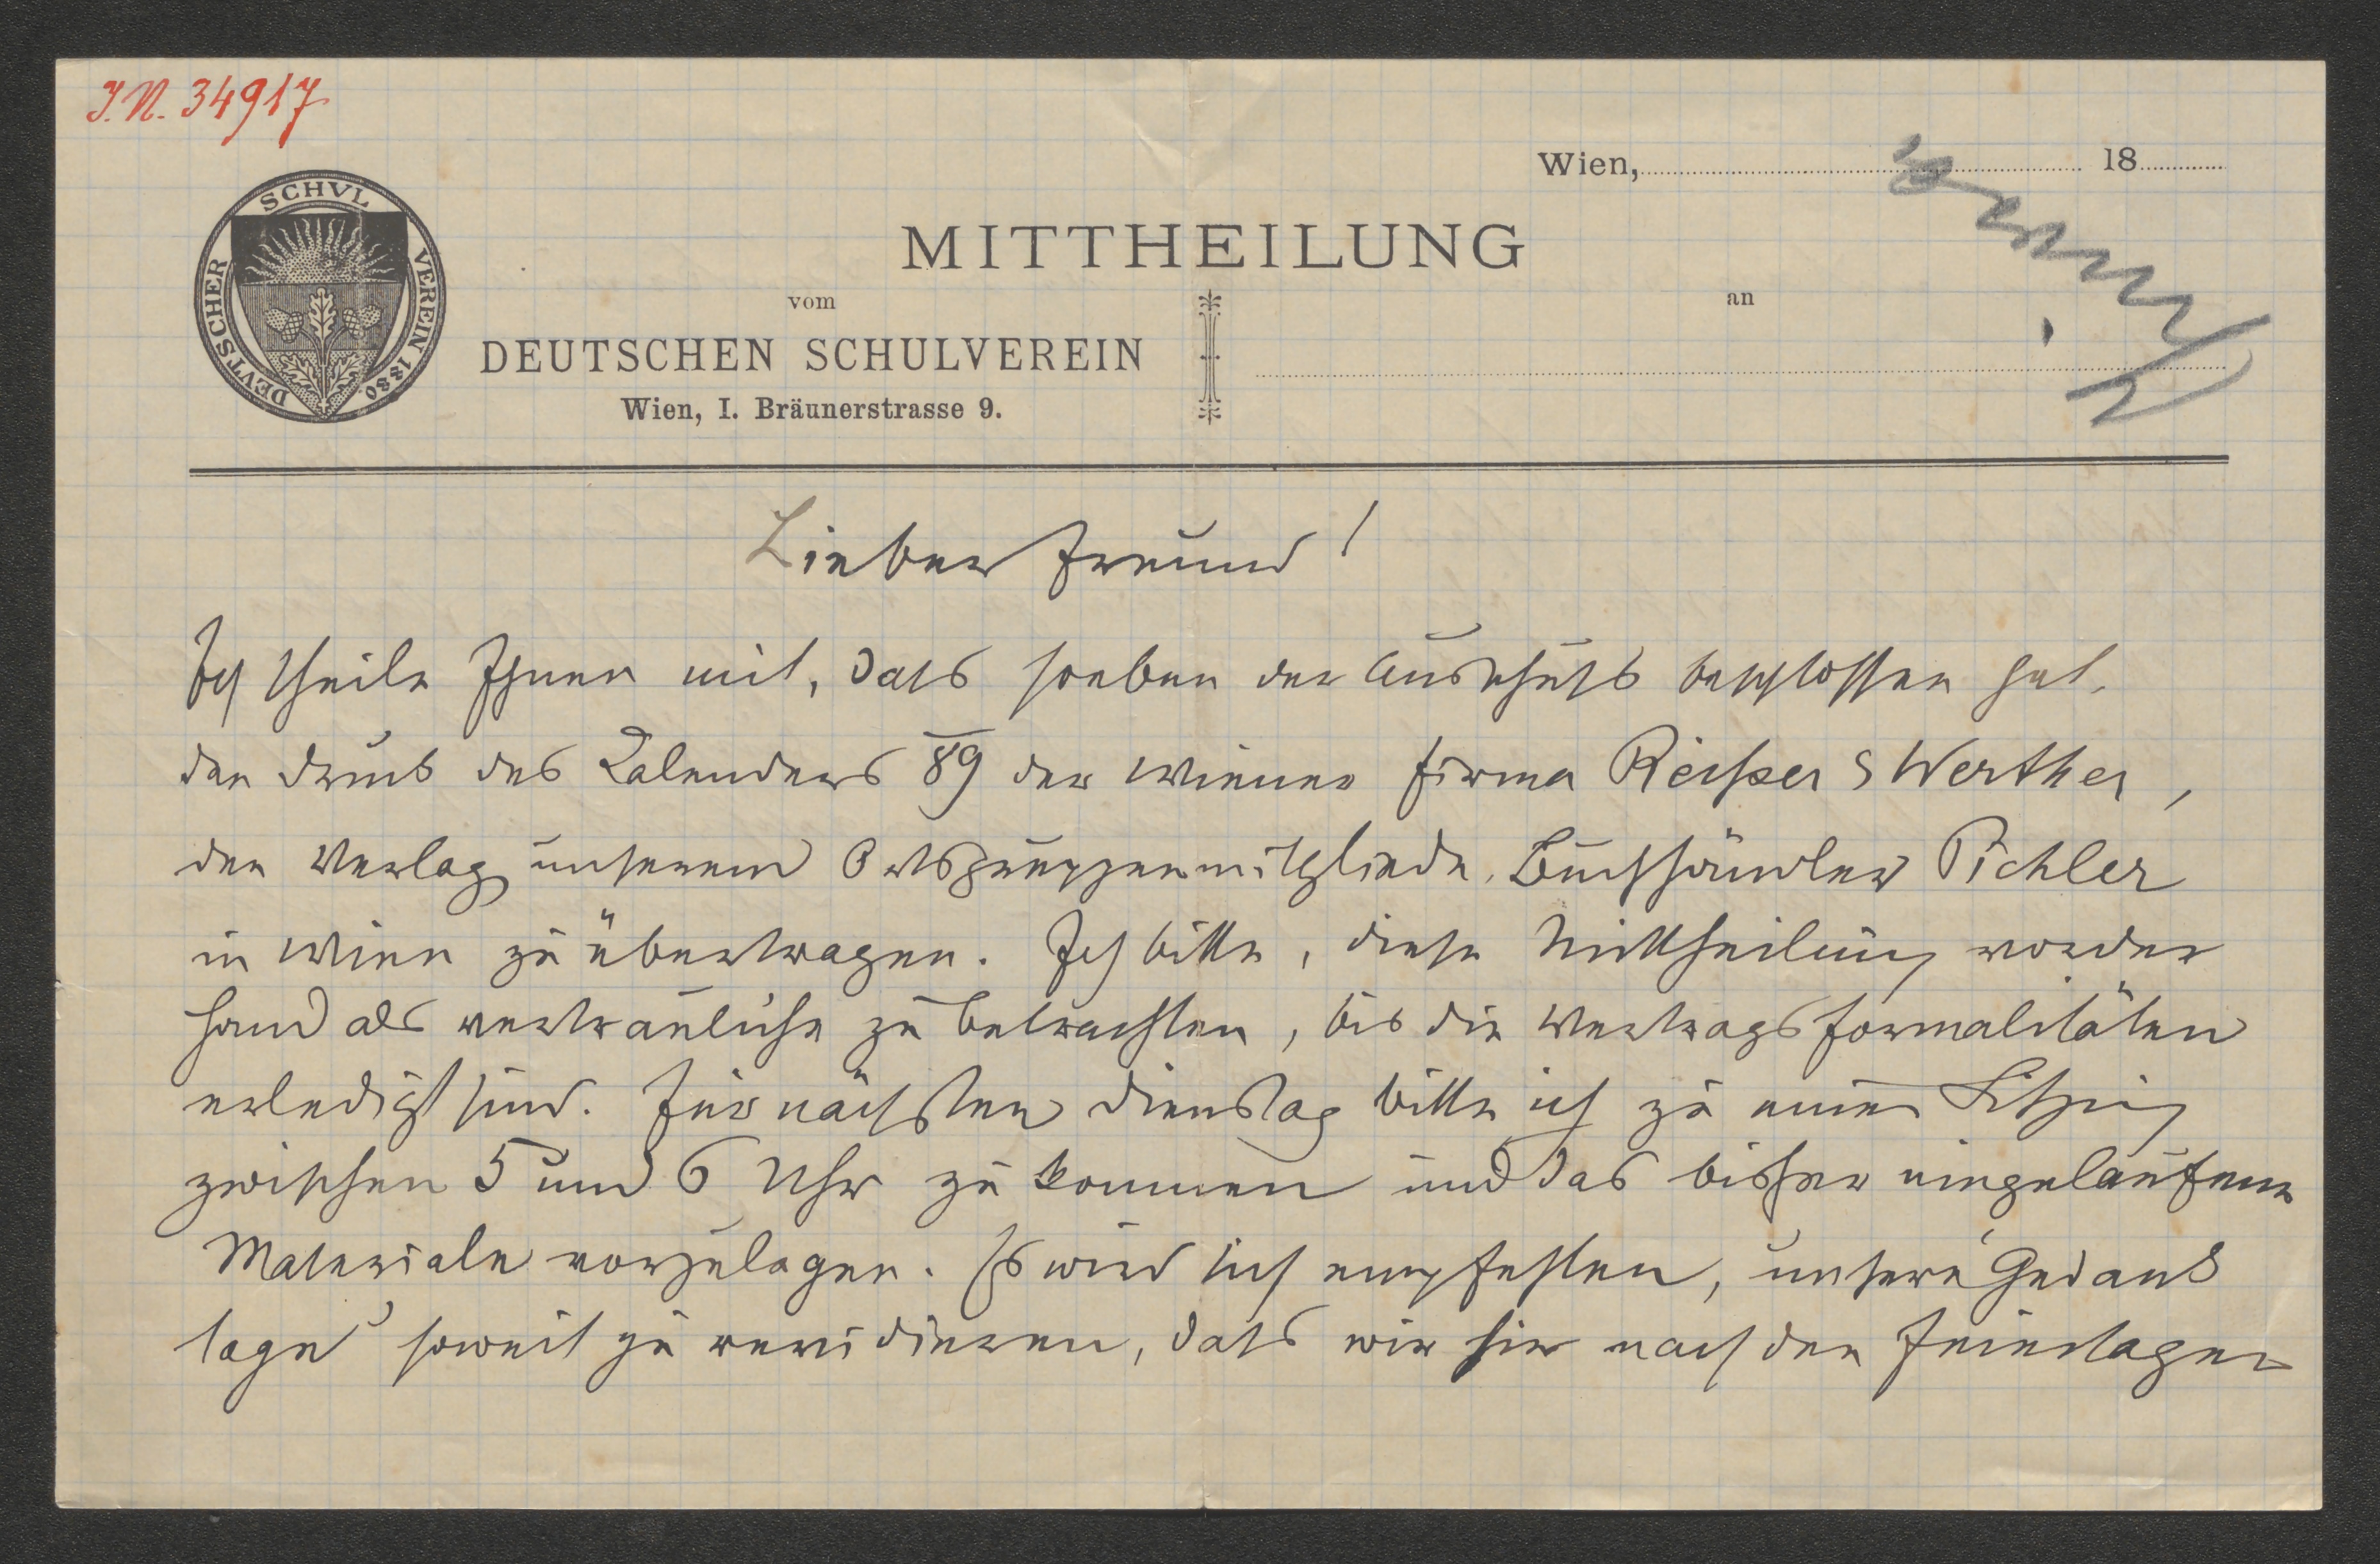 J.N. 34917
Wien, 18
DEVTSCHER SCHVL VEREIN 1880.
MITTHEILUNG
vom
an
DEUTSCHEN SCHULVEREIN
Wien, I. Bräunerstrasse 9.
Lieber Freund!
Ich theile Ihnen mit, dass soeben der Ausschuss beschlossen hat,
den Druck des Kalenders 89 der Wiener Firma Reißer & Werther,
den Verlag unserem Ortsgruppenmitgliede, Buchhändler Pichler
in Wien zu übertragen. Ich bitte, diese Mittheilung vorder
hand als vertrauliche zu betrachten, bis die Vertragsformalitäten
erledigt sind. Für nächsten Dienstag bitte ich zu einer Sitzung
zwischen 5 und 6 Uhr zu kommen und das bisher eingelaufene
Materiale vorzulegen. Es wird sich empfehlen, unsere „Gedenk
tage“ soweit zu revidieren, dass wir sie nach den Feiertagen